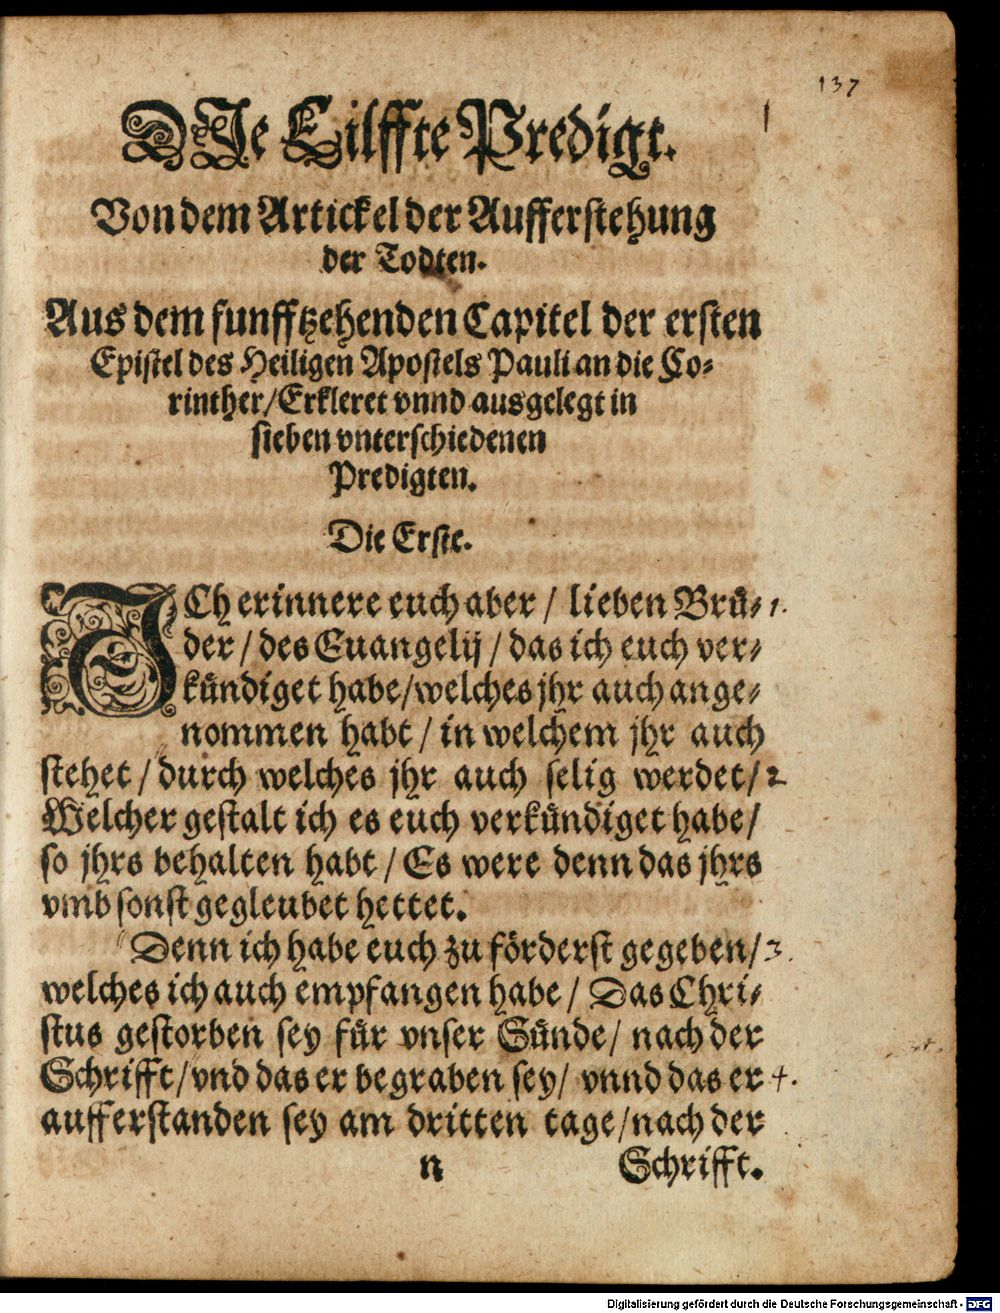 137
DJe Eilffte Predigt.
Von dem Artickel der Aufferstehung
der Todten.
Aus dem funfftzehenden Capitel der ersten
Epistel des Heiligen Apostels Pauli an die Co-
rinther/Erkleret vnnd ausgelegt in
sieben vnterschiedenen
Predigten.
Die Erste.
JCh erinnere euch aber / lieben Brü- 1.
der / des Euangelij / das ich euch ver-
kündiget habe/welches jhr auch ange-
nommen habt / in welchem jhr auch
stehet / durch welches jhr auch selig werdet/ 2
Welcher gestalt ich es euch verkündiget habe/
so jhrs behalten habt / Es were denn das jhrs
vmb sonst gegleubet hettet.
Denn ich habe euch zu förderst gegeben/ 3.
welches ich auch empfangen habe / Das Chri-
stus gestorben sey für vnser Sünde/ nach der
Schrifft/vnd das er begraben sey/ vnnd das er 4.
aufferstanden sey am dritten tage/nach der
n Schrifft.
Digitalisierung gefördert durch die Deutsche Forschungsgemeinschaft - DFG